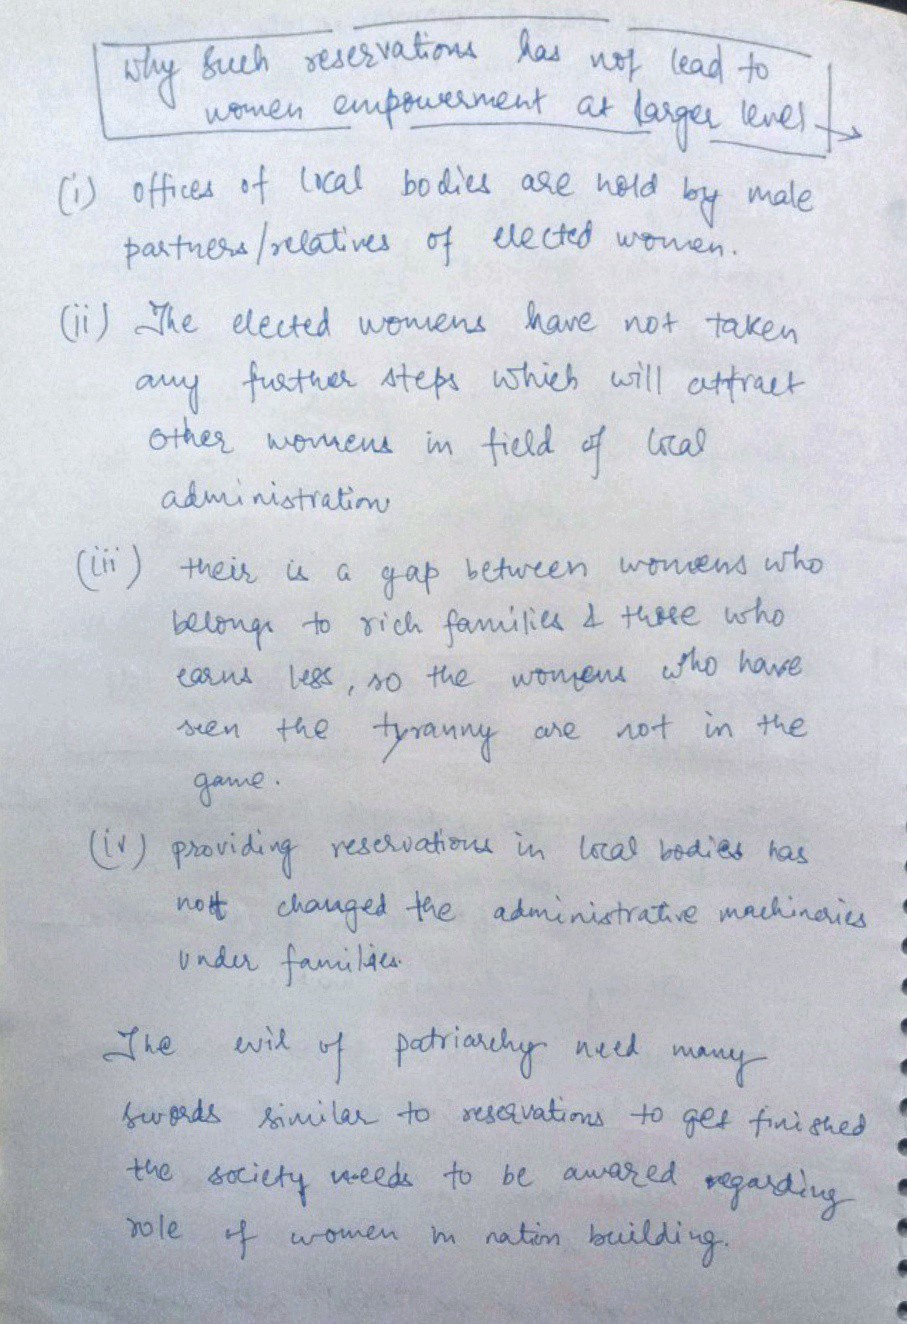 why such reservations has not lead to
women empowerment at larger level
(i) offices of local bodies are hold by male
partners/relatives of elected women.
(ii) The elected womens have not taken
any further steps which will attract
other womens in field of local
administration
(iii) their is a gap between womens who
belongs to rich families & those who
earns less, so the womens who have
seen the tyranny are not in the
game.
(iv) providing reservations in local bodies has
not changed the administrative machineries
under families.
The evil of patriarchy need many
swords similar to reservations to get finished
the society needs to be awared regarding
role of women in nation building.